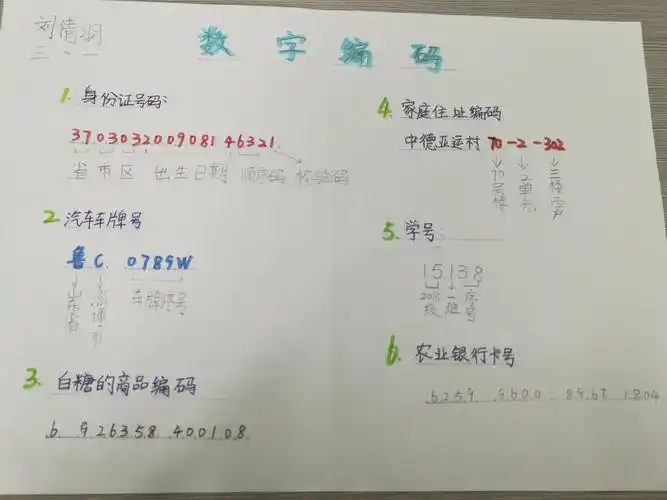 刘倩羽
三、一
数字编码
1. 身份证号码:
370303200908146321
省 市 区 出生日期 顺序码 校验码
2 汽车车牌号
鲁 C 0789W
山东省 淄博市 车牌序号
3. 白糖的商品编码
6 926358 400108
4. 家庭住址编码
中德亚运村 70-2-302
70号楼 2单元
5. 学号:
15138
级 一班 序号
6. 农业银行卡号
6259 9600 8967 1804